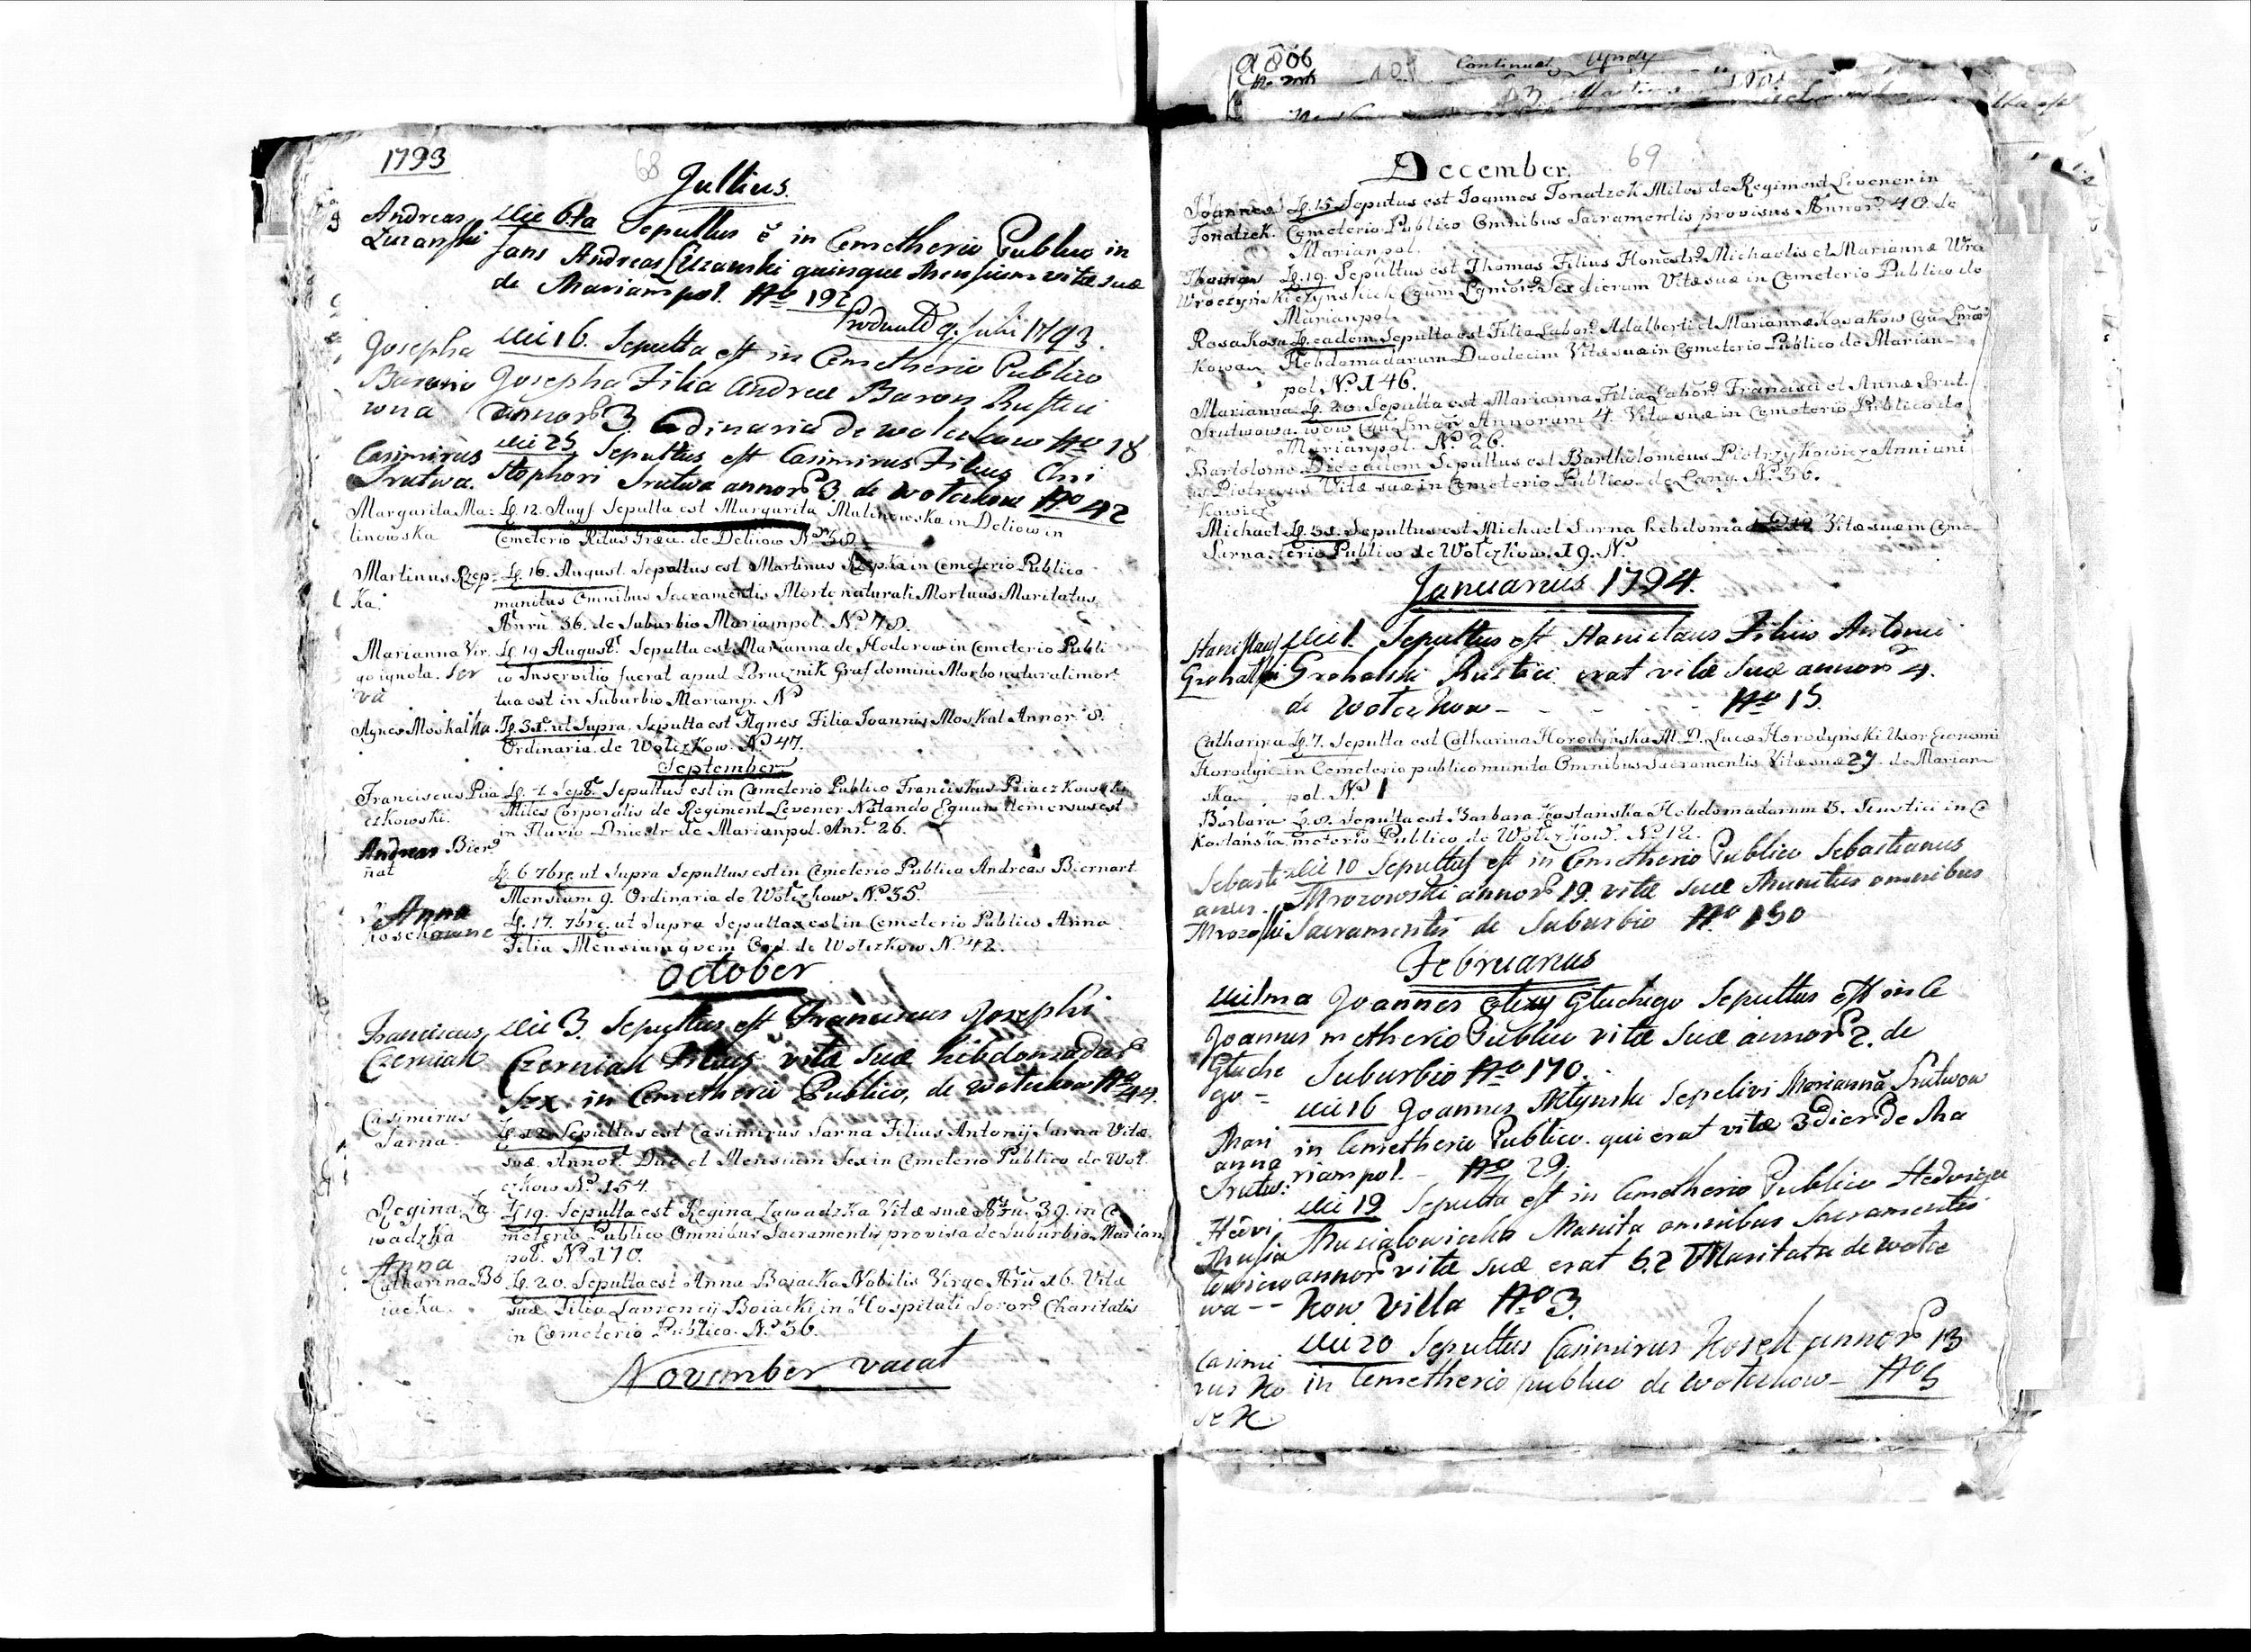 1793
68
Jullius
Andreas die 6ta Sepultus ē in Cemetherio Publico in
Luzanski fans Andreas Luzanski quinque Mensium vitæ suæ
de Mariampol. No 192
Produald 9. Julii 1793.
Josepha die 16. Sepulta est in Cemetherio Publico
Barono Josepha Filia Andreæ Baron Rustici
wna annor 3 Ordinaria de wolczkow No 18
Casimirus die 25 Sepultus est Casimirus Filius Chri
Srutwa. stophori Srutwa annor 3. de wolczkow No 42
Margarita Ma: D. 12. Augs Sepulta est Margarita Malinowska in Deliow in
linowska Cemeterio Ritus Græci. de Deliiow No 30
Martinus Rzep- D. 16. August. Sepultus est Martinus Rzepka in Cemeterio Publico
ka. munitus Omnibus Sacramentis Morte naturali Mortuus Maritatus
Anrū 36. de Suburbio Mariampol. No 78.
Marianna Vir. D. 19 August. Sepulta est Marianna de Hodorow in Cemeterio Publi
go ignota. Ser co Inservitio fuerat apud Porucznik Graf domini Morbo naturali mor
va tua est in Suburbio Marianp. No
Agnes Moskalka D. 31. ut Supra. Sepulta est Agnes Filia Joannis Moskal Annor. 8.
Ordinaria. de Wolczkow. No 47.
September
Franciscus Pia D. 1. Sepr. Sepultus est in Cemeterio Publico Franciskus Piaczkowski
czkowski. Miles Corporalis de Regiment Levener Natando Equum demersus est
in Fluvio Dniestr de Marianpol. Anr. 26.
Andreas Bier
nat D. 6 7bre ut Supra Sepultus est in Cemeterio Publico Andreas Biernart
Mensium 9. Ordinaria de Wolczkow No 35.
Anna D. 17. 7bre. ut Supra Sepulta est in Cemeterio Publico Anna
Filia Mensium Ord. de Wolczkow No 42.
October
Franciscus die 3. Sepultus est Franciscus Josephi
Czerniak Czerniak Filius vitæ suæ hebdomadar
Sex in Cemetherio Publico, de wolczkow No 44.
Casimirus
Sarna. D. 12. Sepultus est Casimirus Sarna Filius Antonij Sarna Vitæ
suæ. Annor. Duo et Mensium Sex in Cemeterio Publico de Wol
czkow No 154.
Regina Za D. 19. Sepulta est Regina Zawadzka Vitæ suæ Anru. 39. in Ce
wadzka meterio Publico Omnibus Sacramentis provisa de Suburbio Marian
pol. No 170.
Anna
Catharina Bo D. 20. Sepulta est Anna Boiacka Nobilis Virgo Anru 16. Vitæ
iacka. suæ Filia Laurencij Boiacki in Hospitali Soror Charitatis
in Cemeterio Publico. No 36.
November vacat
69
December
Joannes D. 15 Seputus est Joannes Tonatzek Miles de Regiment Levener in
Tonatzek. Cemeterio Publico Omnibus Sacramentis provisus Annor. 40. de
Marianpol.
Thomas D. 19. Sepultus est Thomas Filius Honestr. Michaelis et Mariannæ Wro
Wroczynski czynskich Sex dierum Vitæ suæ in Cemeterio Publico de
Marianpol.
Rosa Kosa D. eadem Sepulta est Filia Labor. Adalberti et Mariannæ Kosakow
kowa Hebdomadarum Duodecim Vitæ suæ in Cemeterio Publico de Marian-
pol No. 146.
Marianna D. 20. Sepulta est Marianna Filia Labor. Francisci et Annæ Srut-
Srutwowa. wow Annorum 4. Vitæ suæ in Cemeterio Publico de
Marianpol. No. 26.
Bartolome Die eadem Sepultus est Bartholomeus Pietrzykowicz Anni uni
us Vitæ suæ in Cemeterio Publico de Lang. No. 36.
kowicz
Michael D. 31. Sepultus est Michael Sarna hebdomad Vitæ suæ in Ceme-
Sarna. terio Publico de Wolczkow. 19. No
Januarius 1794.
Stanislaus die 1. Sepultus est Stanislaus Filius Antonii
Grohalski Grohalski Rustici erat vitæ suæ annor 4.
de wolczkow - - - - - No 15.
Catharina D. 7. Sepulta est Catharina Horodyńska M. D. Lucæ Horodyński Uxor Economi
Horodyń in Cemeterio publico munita Omnibus Sacramentis Vitæ suæ 27. de Marian
ska pol. No. 1
Barbara D. 8. Sepulta est Barbara Kostańska Hebdomadarum 13. in Ce
Kostańska meterio Publico de Wolczkow. No. 12.
Sebasti die 10 Sepultus est in Cemetherio Publico Sebastianus
anus. Mrozowski annor 19. vitæ suæ Munitus omnibus
Mrozoski Sacramentis de Suburbio No 150
Februarius
die 1ma Joannes Gluchego Sepultus est in Ce
Joannes metherio Publico vitæ suæ annor 2. de
Gluche Suburbio No 170.
go -
die 16 Joannes Sepelivi Mariannā Srutwow
Mari in Cemetherio Publico. qui erat vitæ 3 dier de Ma
anna
Srutw: riampol. - No 29.
die 19 Sepulta est in Cemetherio Publico Hedvigea
Hedvi
Musia Musialowiczka Munita omnibus Sacramentis
lowiczo annor vitæ suæ erat 62 Maritata de wolcz
wa -- kow Villa No 3.
die 20 Sepultus Casimirus Kosek annor 13
Casimi
rus Ko in Cemetherio publico de wolczkow - No 5
sek